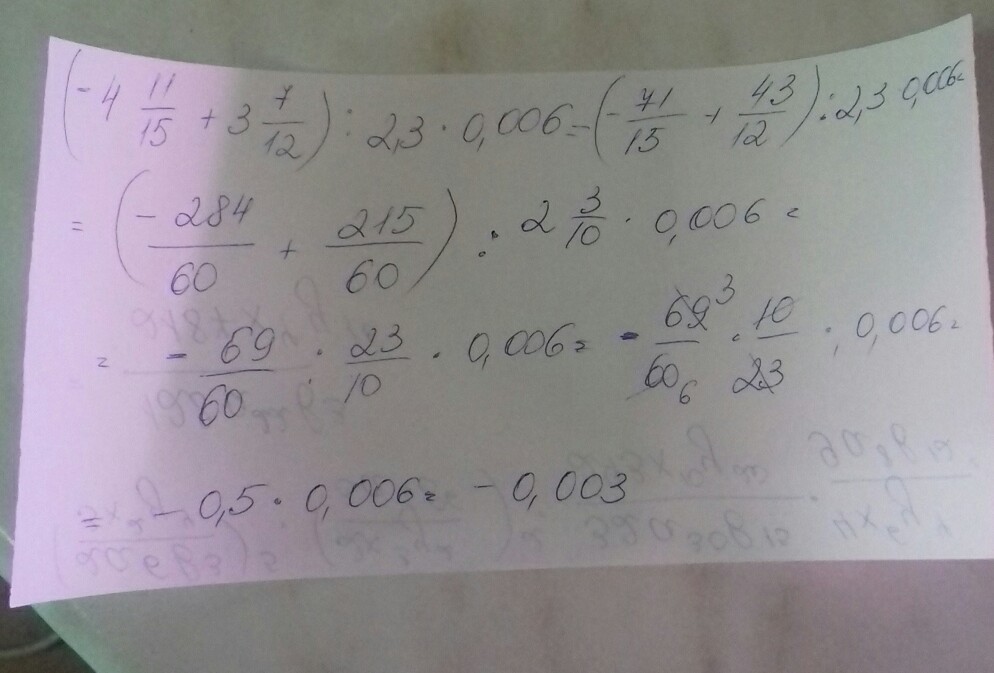 (-4 11/15 + 3 7/12) : 2,3 · 0,006 = (-71/15 + 43/12) : 2,3 0,006=
= (-284/60 + 215/60) : 2 3/10 · 0,006 =
= - 69/60 : 23/10 · 0,006 = - 69 3/60 6 · 10/23 · 0,006 =
= - 0,5 · 0,006 = - 0,003